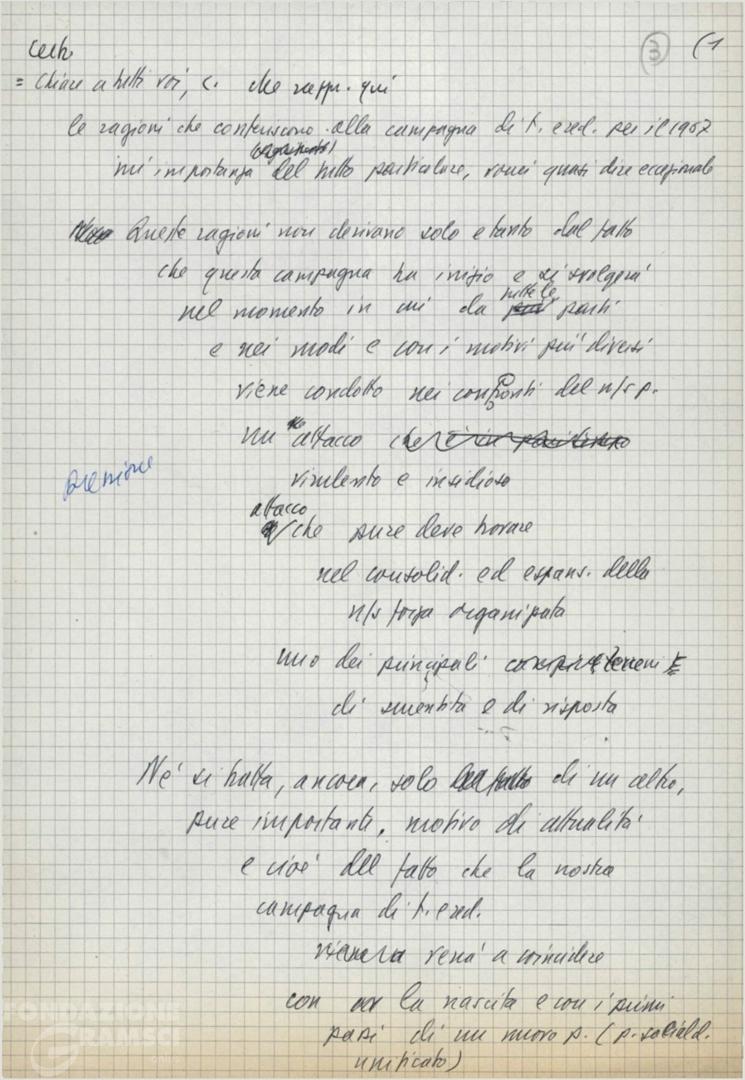 ③ (1
= Chiare a tutti voi, c. che rappr. qui
le ragioni che conferiscono alla campagna di t. e red. per il 1967
un' importanza del tutto particolare, vorrei quasi dire eccezionale
Queste ragioni non derivano solo e tanto dal fatto
che questa campagna ha inizio e si svolgerà
nel momento in cui da tutte le parti
e nei modi e con i motivi più diversi
viene condotto nei confronti del n/s p.
un attacco
virulento e insidioso
attacco
che pure deve trovare
nel consolid. ed espans. della
n/s forza organizzata
uno dei principali terreni
di smentita e di risposta
Né si tratta, ancora, solo di un altro,
pure importante, motivo di attualità
e cioè del fatto che la nostra
campagna di t. e red.
verrà a coincidere
con la nascita e con i primi
passi di un nuovo p. (p. sociald.
unificato)
FONDAZIONE
GRAMSCI